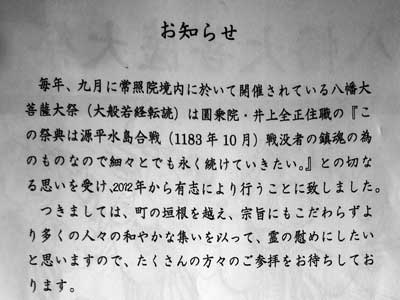 お知らせ
毎年、九月に常照院境内に於いて開催されている八幡大
菩薩大祭（大般若経転読）は圓乗院・井上全正住職の『こ
の祭典は源平水島合戦（1183年10月）戦没者の鎮魂の為
のものなので細々とでも永く続けていきたい。』との切な
る思いを受け、2012年から有志により行うことに致しました。
つきましては、町の垣根を越え、宗旨にもこだわらずよ
り多くの人々の和やかな集いを以って、霊の慰めにしたい
と思いますので、たくさんの方々のご参拝をお待ちしてお
ります。